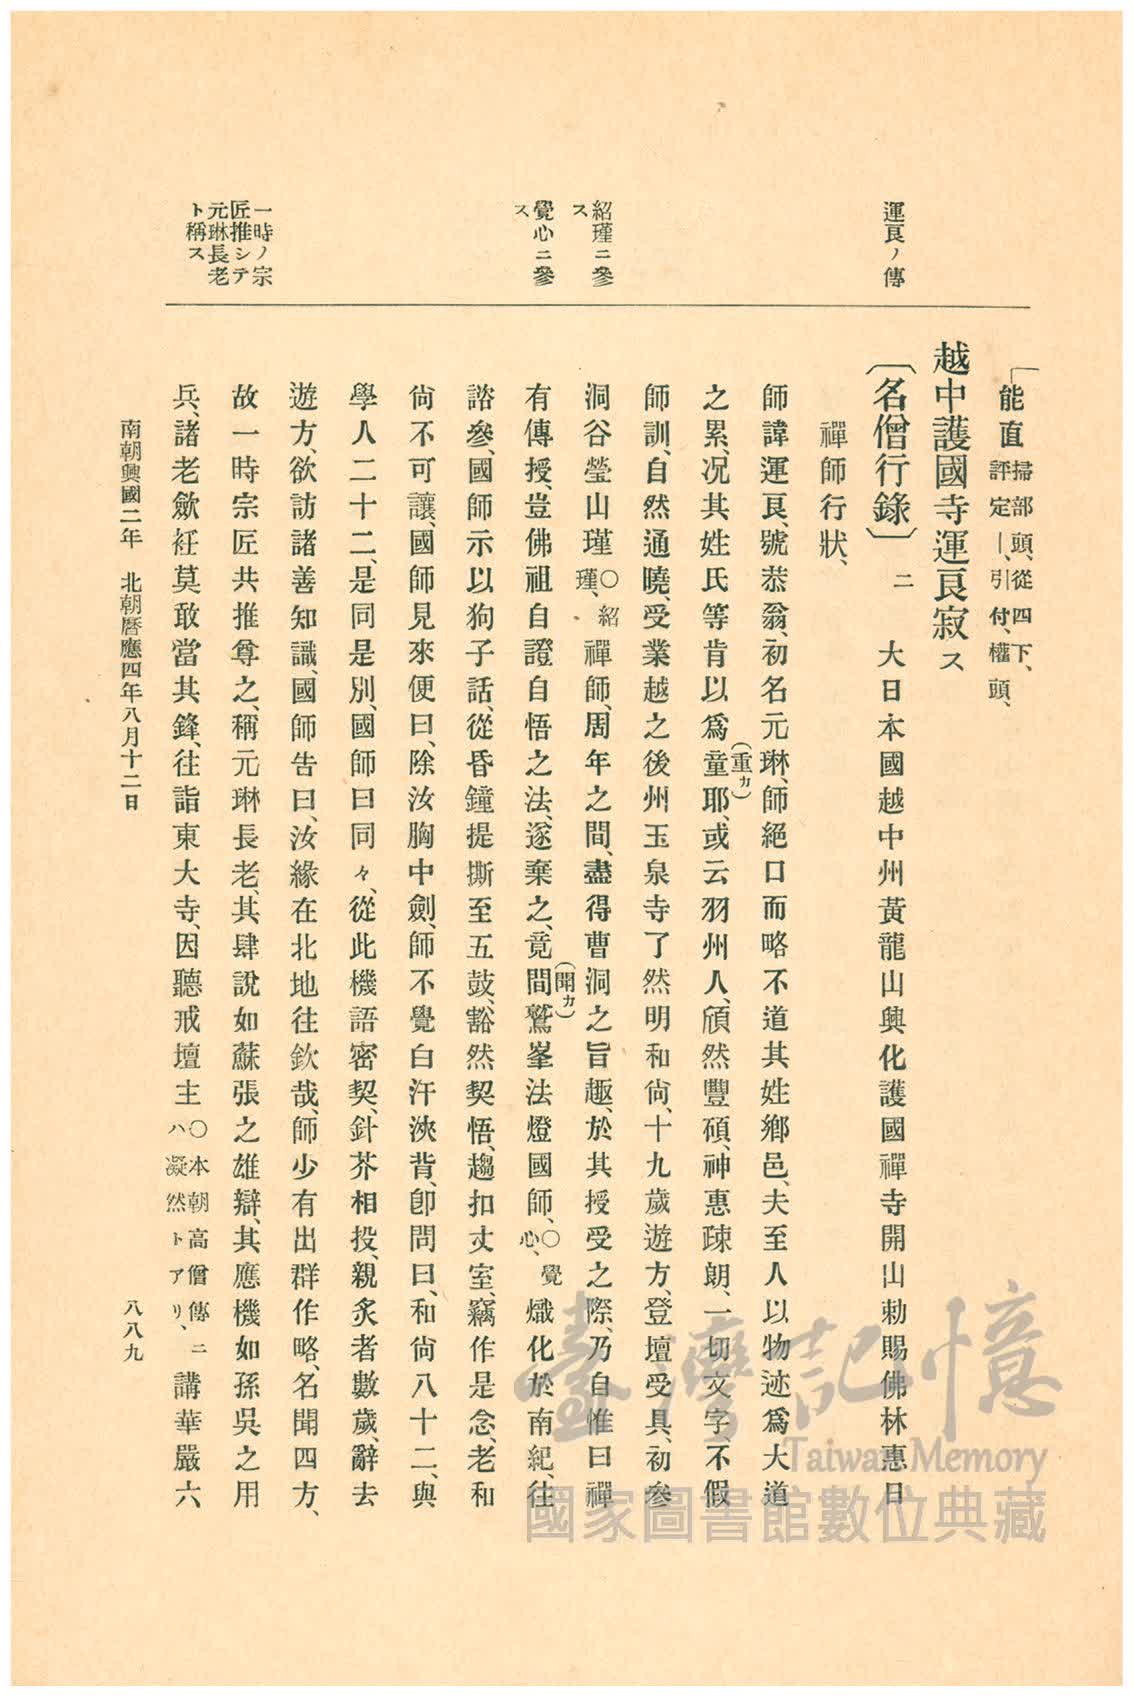 運良ノ傳
紹瑾ニ參
ス
覺心ニ參
ス
一時ノ宗
匠推シテ
元琳長老
ト稱ス
「能直掃部頭、從四下、
評定―、引付、權頭、
越中護國寺運良寂ス
〔名僧行錄〕二　大日本國越中州黃龍山興化護國禪寺開山勅賜佛林惠日
禪師行狀、
師諱運良、號恭翁、初名元琳、師絕口而略不道其姓鄉邑、夫至人以物迹爲大道
之累、况其姓氏等肯以爲童(重カ)耶、或云羽州人、頎然豐碩、神惠疎朗、一切文字、不假
師訓、自然通曉、受業越之後州玉泉寺了然明和尙、十九歲遊方、登壇受具、初參
洞谷瑩山瑾〇紹瑾、禪師、周年之間、盡得曹洞之旨趣、於其授受之際、乃自惟曰、禪
有傳授、豈佛祖自證自悟之法、遂棄之、竟間(聞カ)鷲峯法燈國師、〇覺心、熾化於南紀、往
諮參、國師示以狗子話、從昏鐘提撕至五鼓、豁然契悟、趨扣丈室、竊作是念、老和
尙不可讓、國師見來便曰、除汝胸中劍、師不覺白汗浹背、卽問曰、和尙八十二、與
學人二十二、是同是別、國師曰同々、從此機語密契、針芥相投、親炙者數歲、辭去
遊方、欲訪諸善知識、國師告曰、汝緣在北地往欽哉、師少有出群作略、名聞四方、
故一時宗匠共推尊之、稱元琳長老、其肆說如蘇張之雄辯、其應機如孫吳之用
兵、諸老歛衽莫敢當其鋒、往詣東大寺、因聽戒壇主〇本朝高僧傳ニハ凝然トアリ、講華嚴六
南朝興國二年　北朝曆應四年八月十二日
八八九
臺灣記憶
Taiwan Memory
國家圖書館數位典藏